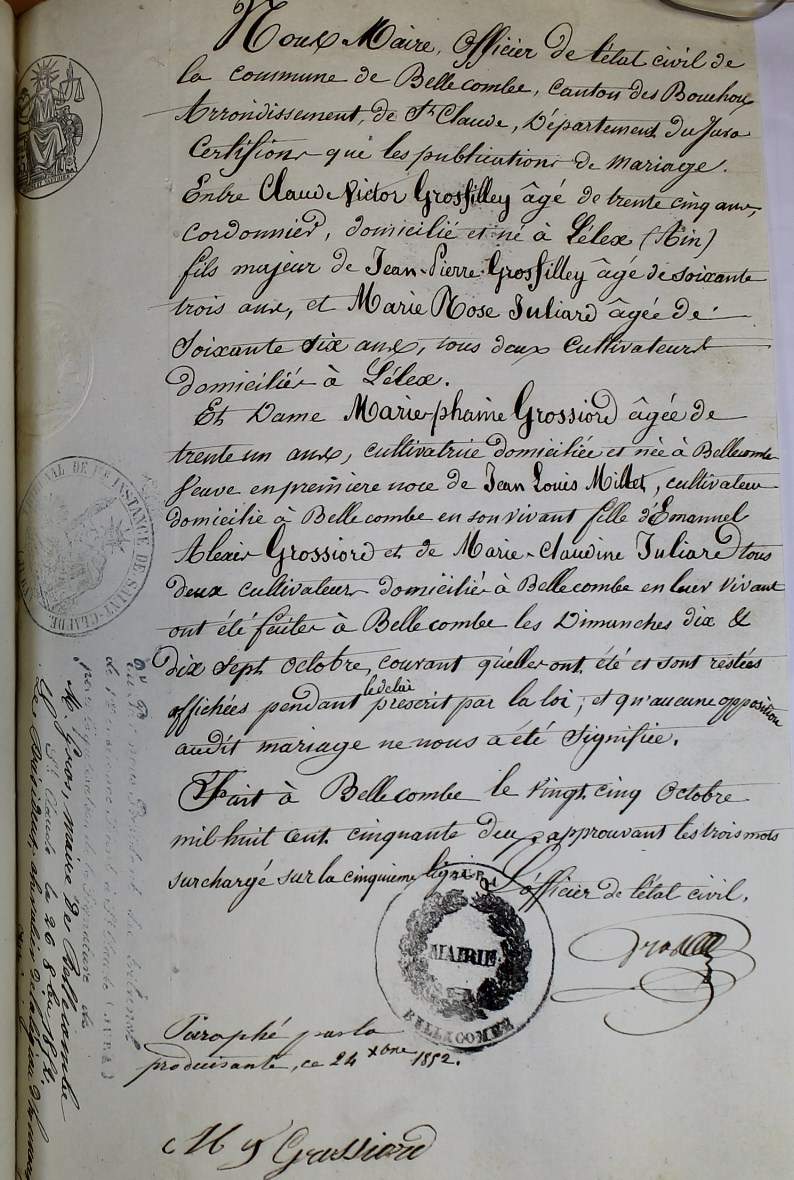 Nous Maire, Officier de l'état civil de
la commune de Bellecombe, canton des Bouchoux
Arrondissement, de St Claude, Département du Jura
Certifions que les publications de mariage.
Entre Claude Victor Grosfilley âgé de trente cinq ans,
cordonnier, domicilié et né à Lélex (Ain)
fils majeur de Jean-Pierre Grosfilley âgé de soixante
trois ans, et Marie Rose Juliard âgée de
soixante six ans, tous deux cultivateurs
domiciliés à Lélex.
Et Dame Marie-phanie Grossiord âgée de
trente un ans, cultivatrice domiciliée et née à Bellecombe
Veuve en première noce de Jean Louis Millet, cultivateur
domicilié à Bellecombe en son vivant fille d'Emannel
Alexis Grossiord et de Marie-Claudine Juliard tous
deux cultivateurs domiciliés à Bellecombe en leur vivant
ont été faites à Bellecombe les Dimanches dix &
dix sept octobre, courant qu'elles ont été et sont restées
affichées pendant le délai prescrit par la loi, et qu'aucune opposition
audit mariage ne nous a été signifiée.
Fait à Bellecombe le vingt cinq Octobre
mil huit cent cinquante deux, approuvant les trois mots
surchargé sur la cinquième ligne. L'officier de l'état civil,
MAIRIE
BELLECOMBE
Paraphé par la
produisante, ce 24 xbre 1852.
M f Grossiord
TRIBUNAL DE 1re INSTANCE DE SAINT-CLAUDE
M. Gros, maire de Bellecombe
St Claude le 26 8bre 1852